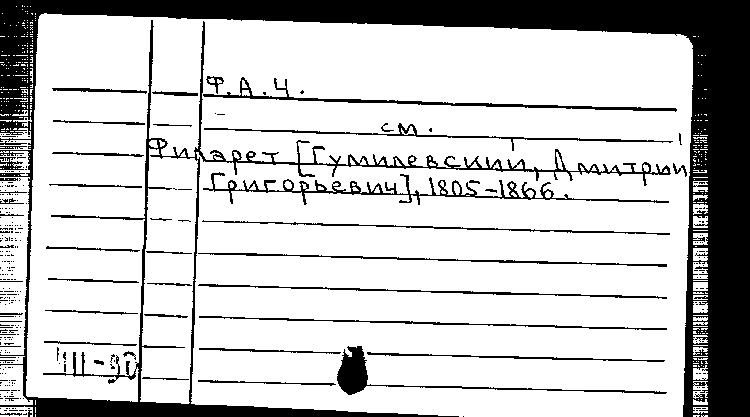 Ф.А.Ч.
см.
Филарет [Гумилевский, Дмитрий
Григорьевич], 1805-1866.